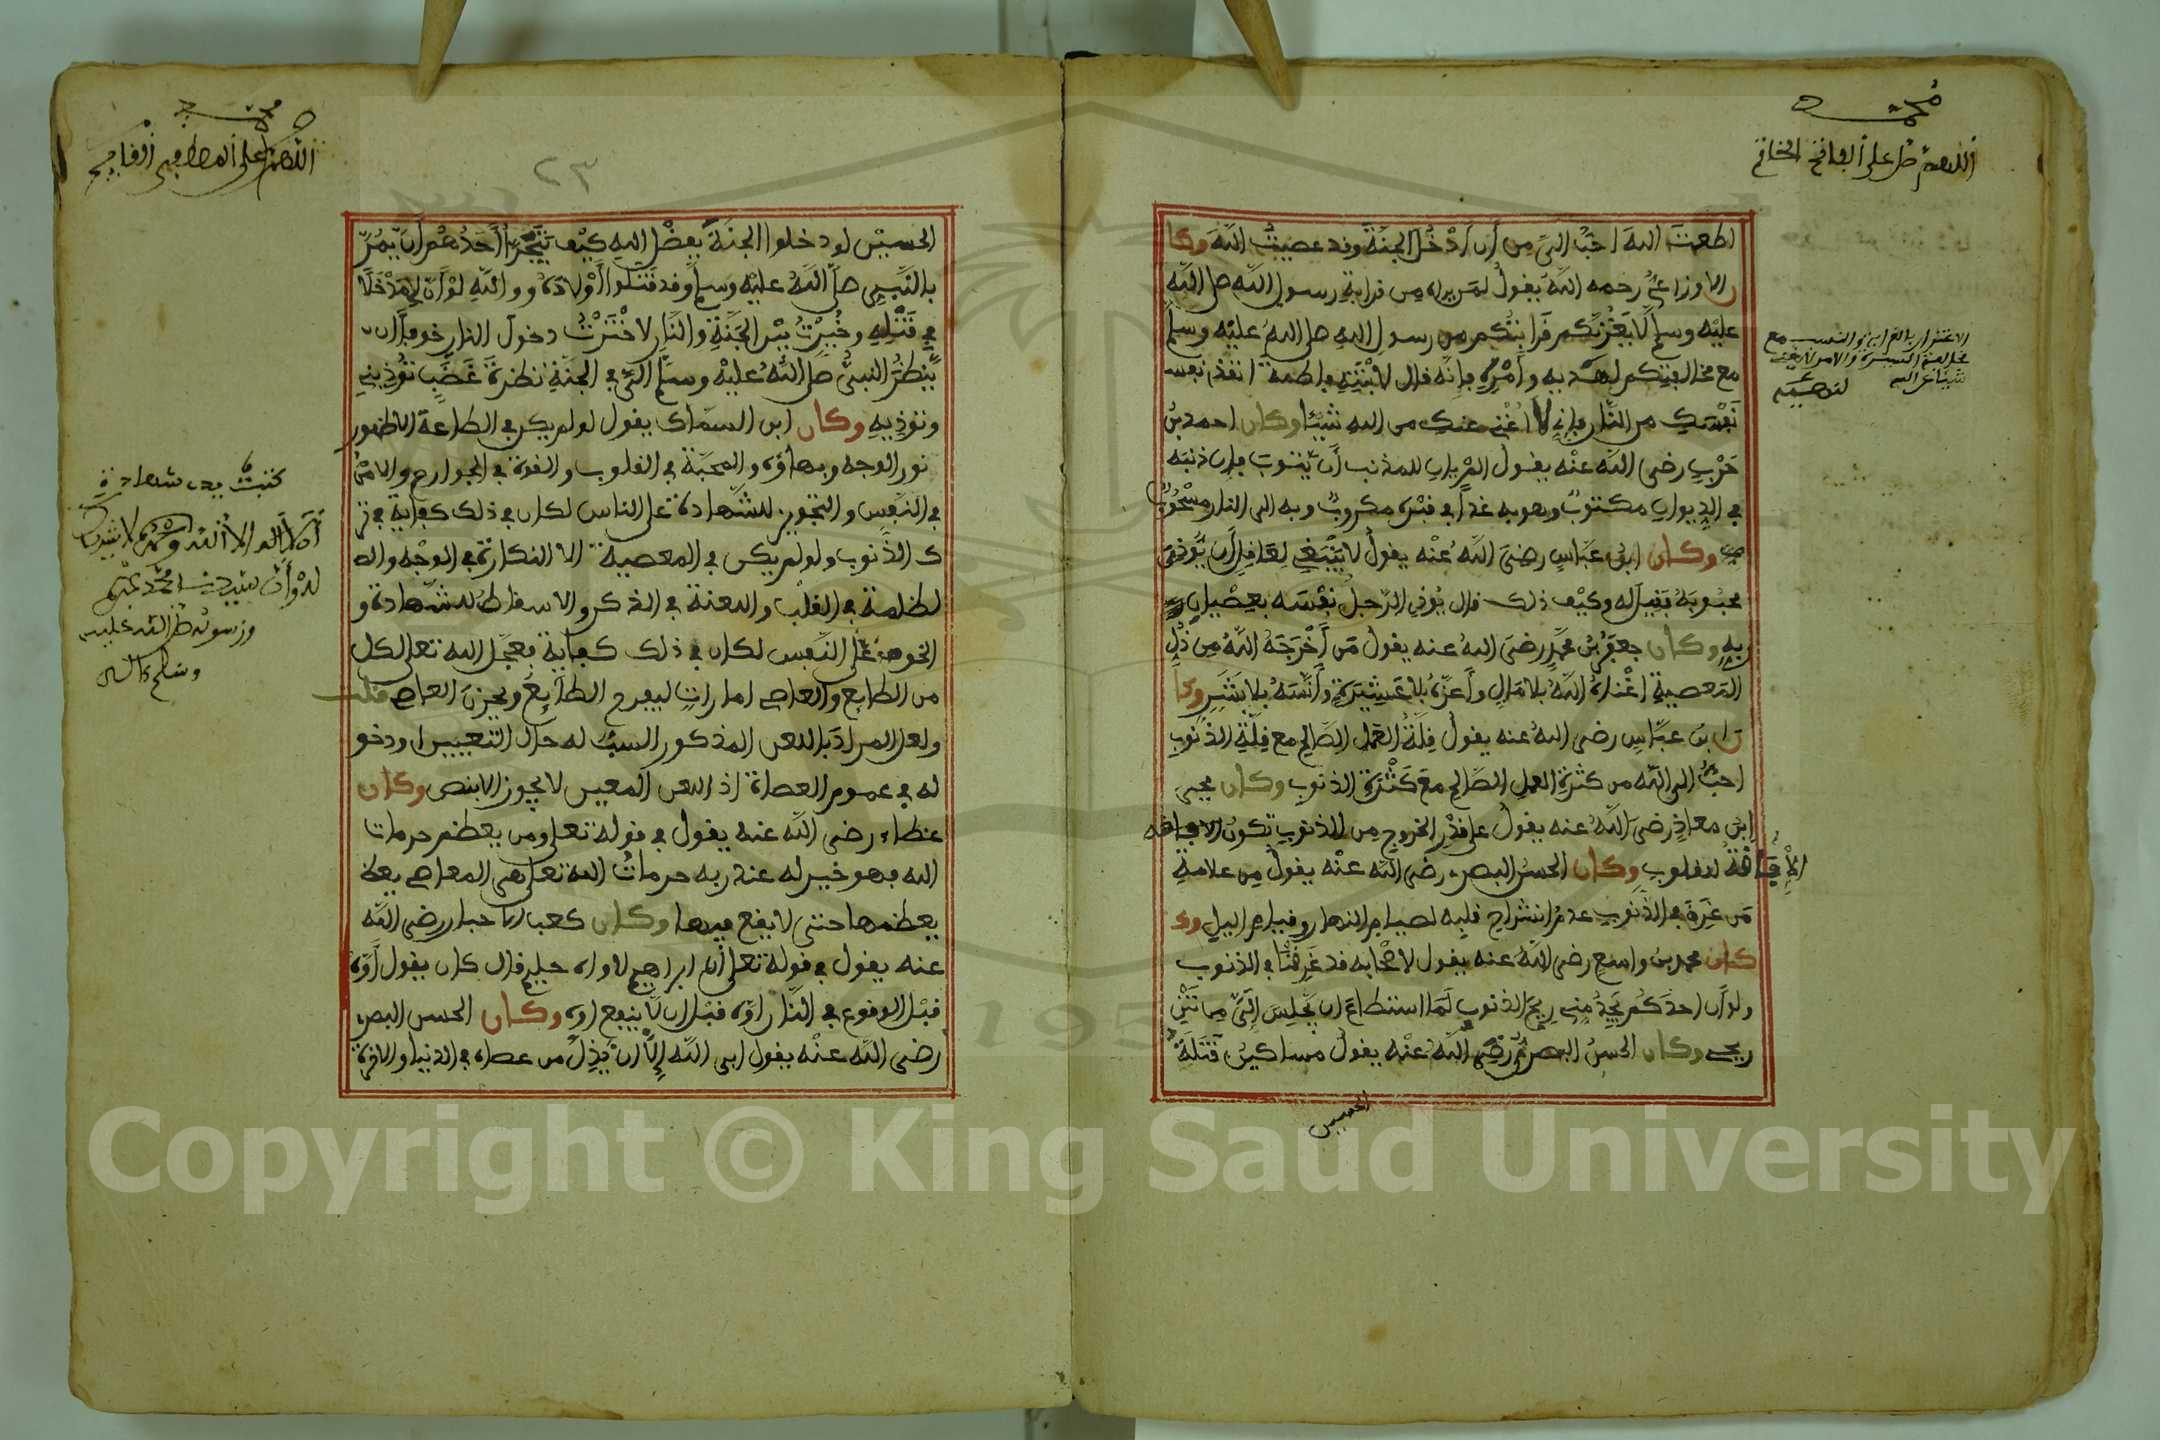 محمد
اللهم صل على الفاتح الخاتم
اطعت الله احب الي من أن أدخل الجنة وقد عصيت الله وكا
ن الاوزاعي رحمه الله يقول لمن يراه من قرابة رسول الله صلى الله
عليه وسلم لا يغرنكم قرابتكم من رسول الله صلى الله عليه وسلم
مع مخالفتكم لهديه وأمره فإنه قال لابنته فاطمة انقذي نفسـ
نفسك من النار فإني لا أغني عنك من الله شيئا وكان احمد بن
حرب رضي الله عنه يقول المْ يان للمذنب أن يتوب فإن ذنبه
في الديوان مكتوبٌ وهو به غدا في قبره مكروبٌ وبه الى النار مسحُوبٌ
وكان ابن عباس رضي الله عنه يقول لا ينبغي لعاقل أن يُوذي
محبوبه قيل له وكيف ذلك قال يُوذي الرجل نفسه بعصيان ر
ربه وكان جعفر بن محمد رضي الله عنه يقول من أخرجه الله من ذل
المعصية اغناه الله بلا مال وأعزه بلا عشيرة وأنسه بلا بشر وكا
ن ابن عباس رضي الله عنه يقول قلة العمل الصالح مع قلة الذنوب
احب الى الله من كثرة العمل الصالح مع كثرة الذنوب وكان يحيى
ابن معاذ رضي الله عنه يقول على قدر الخروج من الذنوب تكون الافاقه
الإفاقة للقلوب وكان الحسن البصري رضي الله عنه يقول من علامة
من غرق في الذنوب عدم انشراح قلبه لصيام النهار وقيام اليل وكـ
كان محمد بن واسع رضي الله عنه يقول لاصحابه قد غرقنا في الذنوب
ولو أن احدكم يجد مني ريح الذنوب لما استطاع ان يجلس إلي من نتن
ريحي وكان الحسن البصري رضي الله عنه يقول مساكين قتلة
الحسين
الاغترار بالقرابة والنسب مع
مخالفة السيرة والامر لا يغني
شيئا عن الله
محمد
اللهم صل على المصطفى الفاتح
٢٣
الحسين لو دخلوا الجنة بفضل الله كيف يتجرأ أحدهم أن يمر
بالنبي صلى الله عليه وسلم وقد قتلوا أولاده ووالله لو أن لي مدخلا
في قتله وخيرت بين الجنة والنار لاخترت دخول النار خوفا ان
ينظر النبي صلى الله عليه وسلم الي في الجنة نظرة غضب توذيني
وتوذيه وكان ابن السماك يقول لو لم يكن في الطاعة الا ظهور
نور الوجه وبهاؤه والمحبة في القلوب والقوة في الجوارح والامن
في النفس والتجويز للشهادة على الناس لكان في ذلك كفاية في تر
ك الذنوب ولو لم يكن في المعصية الا النكارة في الوجه والـ
لظلمة في القلب واللعنة في الذكر والاسقاط للشهادة و
الخوف على النفس لكان في ذلك كفاية فجعل الله تعلى لكل
من الطايع والعاصي امارات ليفرح الطايع ويحزن العاصي قلت
ولعل المراد باللعن المذكور السب له حال التعيين او دخو
له في عموم العصاة اذ اللعن المعين لا يجوز الا بنص وكان
عطاء رضي الله عنه يقول في قوله تعلى ومن يعظم حرمات
الله فهو خير له عند ربه حرمات الله تعلى هي المعاصي يعظ
يعظمها حتى لا يقع فيها وكان كعب الاحبار رضي الله
عنه يقول في قوله تعلى إن ابراهيم لاواه حليم قال كان يقول أوه
قبل الوقوع في النار اوه قبل ان لا ينفع اوه وكان الحسن البصري
رضي الله عنه يقول ابى الله إلا ان يذل من عصاه في الدنيا والاخرة
كتبت بيدي شهادة
أن لا إله الا الله وحده لا شريك
له وأن سيدنا محمدا عبده
ورسوله صلى الله عليه
وسلم